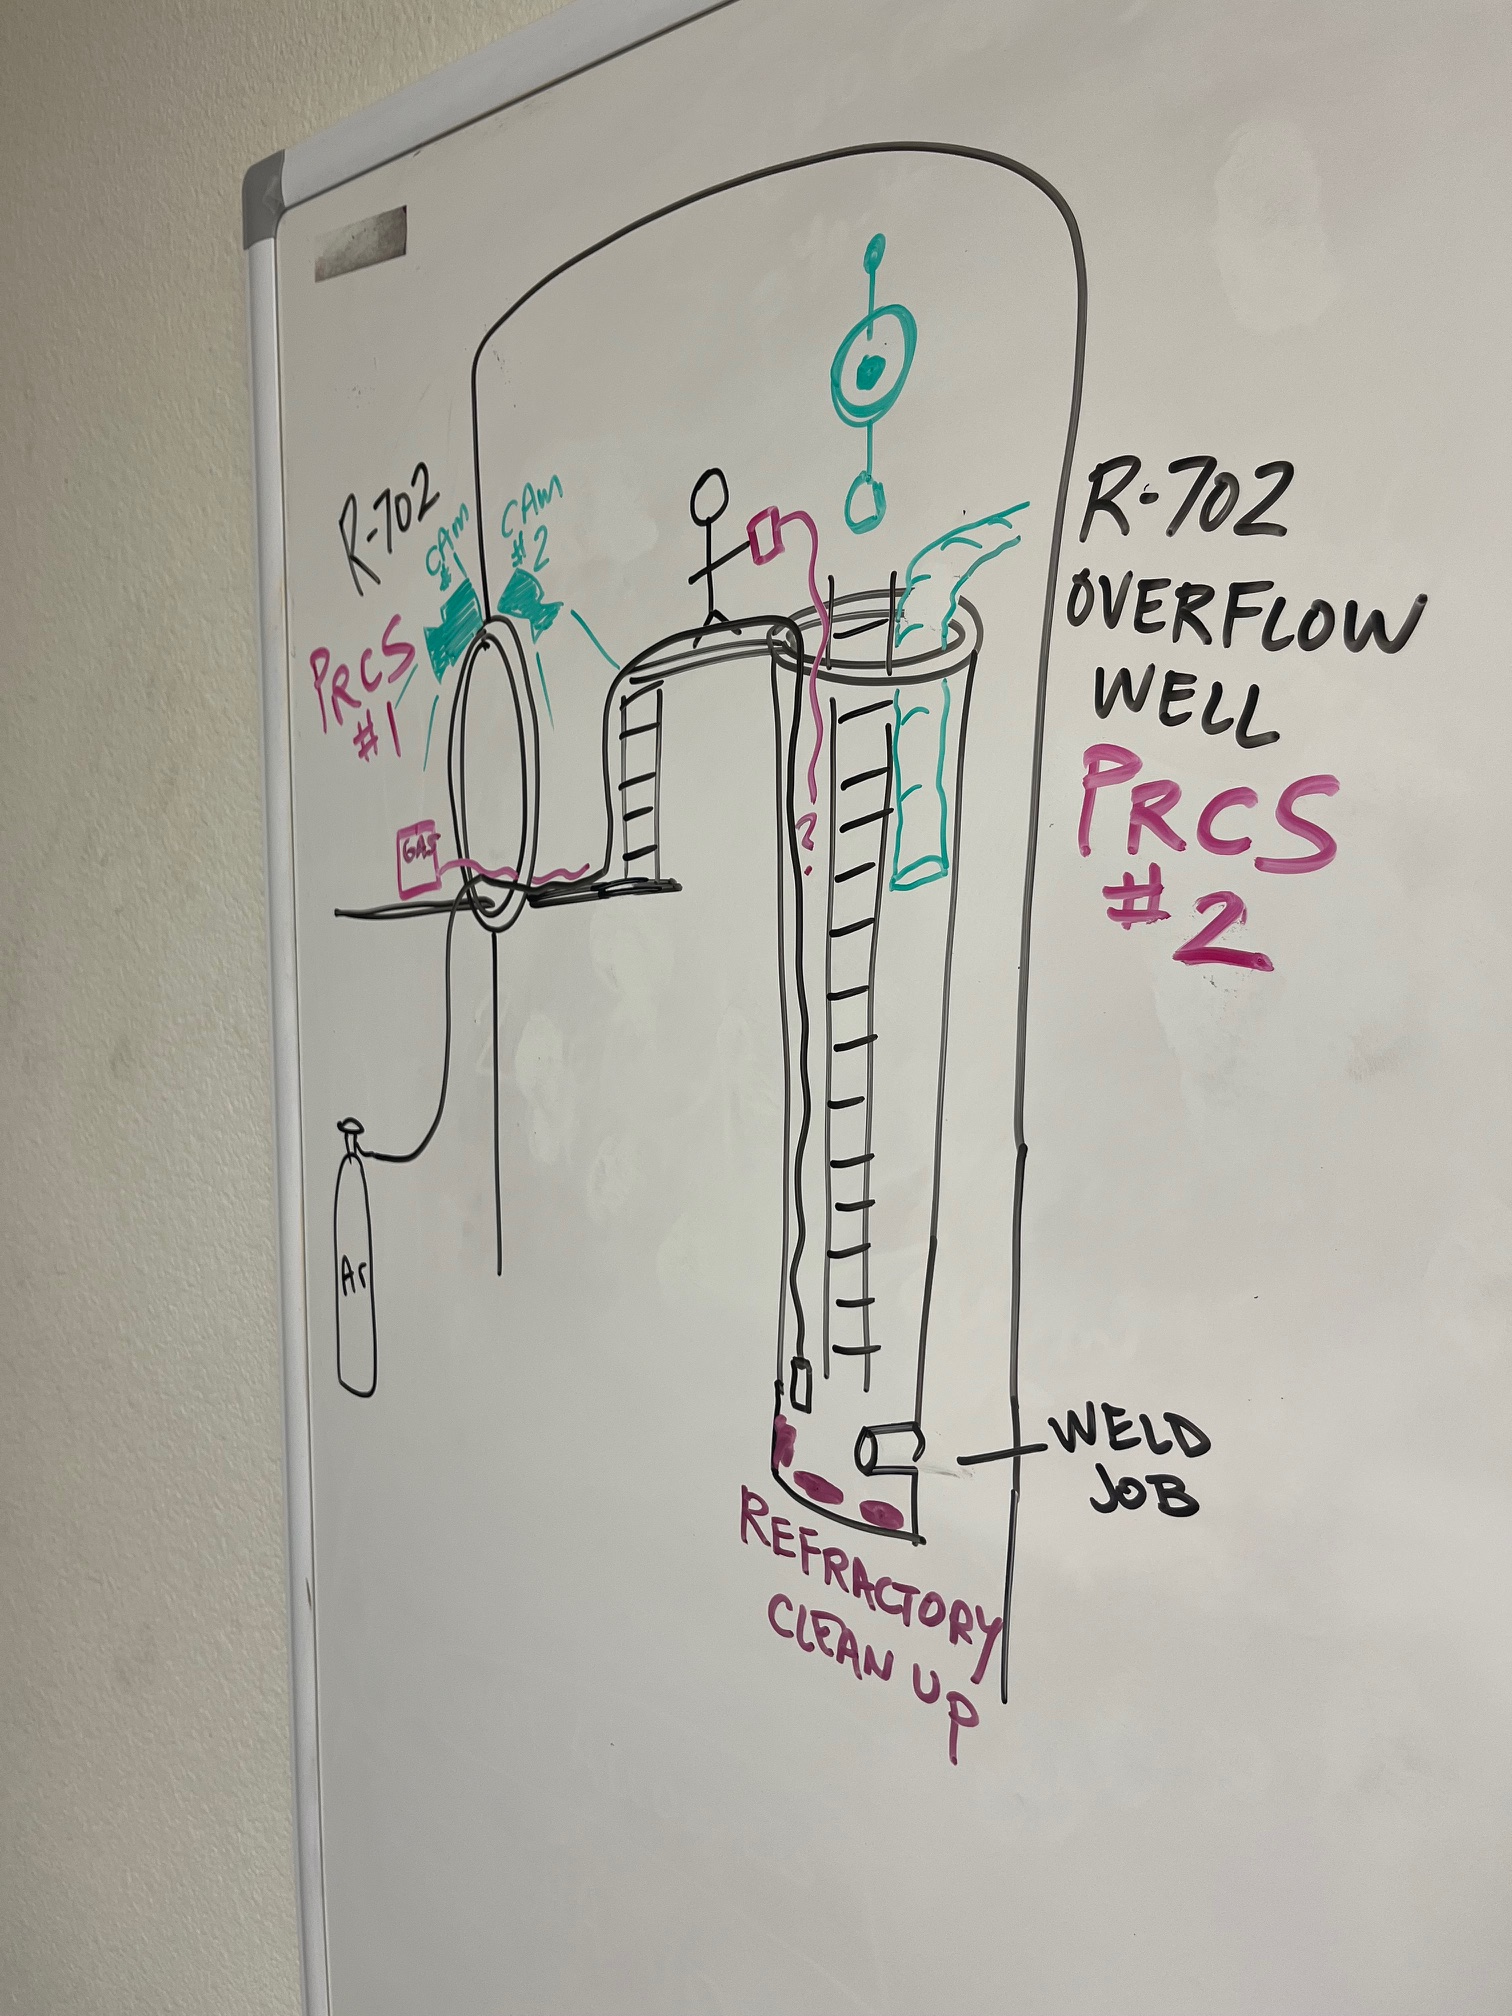 R-702
CAM
#1
CAM
#2
PRCS
#1
GAS
Ar
?
R-702
OVERFLOW
WELL
PRCS
#2
WELD
JOB
REFRACTORY
CLEAN UP